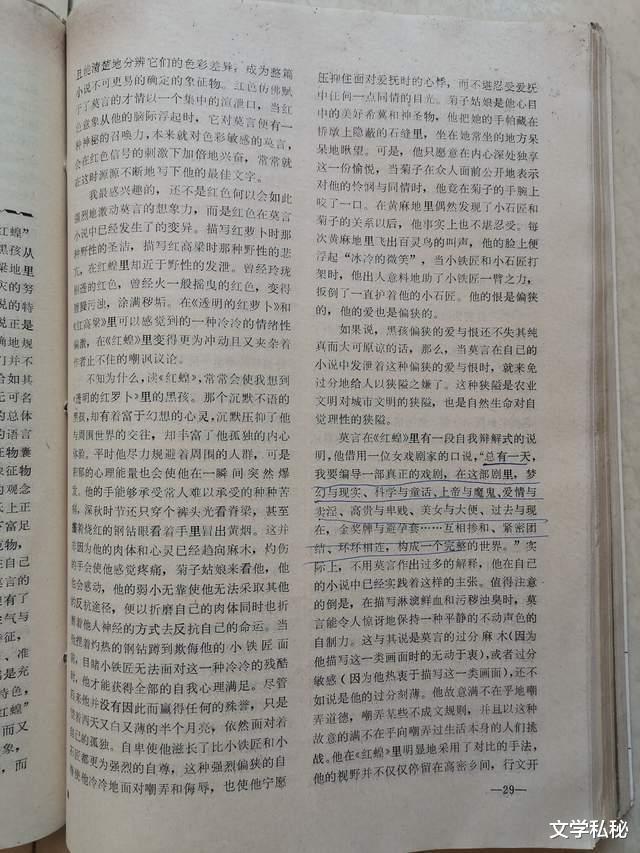 红蝗”
黑孩从
梁地里
灾的努
说的特
说正是
确地规
们并不
给如其
无可名
的总体
的语言
征物囊
征物
的观念
在自己
莫言的
没有了
气与
特征，
、准
是充
特色，
红蝗”
而又
象，
，而
且能清楚地分辨它们的色彩差异，成为整篇
小说不可更易的确定的象征物。红色仿佛赋
于了莫言的才情以一个集中的渲泄口，当红
色意象从他的脑际浮起时，它对莫言便有一
种神秘的召唤力，本来就对色彩敏感的莫言，
会在红色信号的刺激下加倍地兴奋，常常就
在这时源源不断地写下他的最佳文字。
我最感兴趣的，还不是红色何以会如此
强烈地激动莫言的想象力，而是红色在莫言
小说中已经发生了的变异。描写红萝卜时那
种野性的圣洁，描写红高粱时那种野性的悲
亢，在《红蝗》里却近于野性的发泄。曾经玲珑
剔透的红色，曾经火一般摇曳的红色，变得
龌龊污浊，涂满秽垢。在《透明的红萝卜》和
《红高粱》里可以感觉到的一种冷冷的情绪性
偏激，在《红蝗》里变得更为冲动且又夹杂着
作者止不住的嘲讽议论。
不知为什么，读《红蝗》，常常会使我想到
《透明的红萝卜》里的黑孩。那个沉默不语的
黑孩，却有着富于幻想的心灵，沉默压抑了他
与周围世界的交往，却丰富了他孤独的内心
体验。平时他尽力规避着周围的人群，可是
郁郁的心理能量也会使他在一瞬间突然爆
发。他的手能够承受常人难以承受的种种苦
痛，深秋时节还只穿个裤头光着脊梁，甚至
攥着烧红的钢钻眼看着手里冒出黄烟。这并
非因为他的肉体和心灵已经趋向麻木，灼伤
的手会使他感觉疼痛，菊子姑娘来看他，他
也会感动，他的弱小无靠使他无法采取其他
的反抗途径，便以折磨自己的肉体同时也折
磨着他人神经的方式去反抗自己的命运。当
他捏着灼热的钢钻蹲到欺侮他的小铁匠面
前，目睹小铁匠无法面对这一种冷冷的残酷
时，他才能获得全部的自我心理满足。尽管
后来他并没有因此而赢得任何的殊誉，只是
望着西天又白又薄的半个月亮，依然面对着
自己的孤独。自卑使他滋长了比小铁匠和小
石匠都更为强烈的自尊，这种强烈偏狭的自
尊使他冷冷地面对嘲弄和侮辱，也使他宁愿
压抑住面对爱抚时的心悸，而不堪忍受爱抚
中任何一点同情的目光。菊子姑娘是他心目
中的美好希冀和神圣物，他把她的手帕藏在
桥墩上隐蔽的石缝里，坐在她常坐的地方呆
呆地瞅望。可是，他只愿意在内心深处独享
这一份愉悦，当菊子在众人面前公开地表示
对他的怜悯与同情时，他竟在菊子的手腕上
咬了一口。在黄麻地里偶然发现了小石匠和
菊子的关系以后，他事实上也不堪忍受。每
次黄麻地里飞出百灵鸟的叫声，他的脸上便
浮起“冰冷的微笑”，当小铁匠和小石匠打
架时，他出人意料地助了小铁匠一臂之力，
扳倒了一直护着他的小石匠。他的恨是偏狭
的，他的爱也是偏狭的。
如果说，黑孩偏狭的爱与恨还不失其纯
真而大可原谅的话，那么，当莫言在自己的
小说中发泄着这种偏狭的爱与恨时，就来免
过分地给人以狭隘之嫌了。这种狭隘是农业
文明对城市文明的狭隘，也是自然生命对自
觉理性的狭隘。
莫言在《红蝗》里有一段自我辩解式的说
明，他借用一位女戏剧家的口说，“总有一天，
我要编导一部真正的戏剧，在这部剧里，梦
幻与现实、科学与童话、上帝与魔鬼、爱情与
卖淫、高贵与卑贱、美女与大便、过去与现
在，金奖牌与避孕套……互相掺和、紧密团
结、环环相连，构成一个完整的世界。”实
际上，不用莫言作出过多的解释，他在自己
的小说中已经实践着这样的主张。值得注意
的倒是，在描写淋漓鲜血和污秽浊臭时，莫
言能令人惊讶地保持一种平静的不动声色的
自制力。这与其说是莫言的过分麻木（因为
他描写这一类画面时的无动于衷），或者过分
敏感（因为他热衷于描写这一类画面），还不
如说是他的过分刻薄。他故意满不在乎地嘲
弄道德，嘲弄某些不成文规则，并且以这种
故意的满不在乎向嘲弄过生活本身的人们挑
战。他在《红蝗》里明显地采用了对比的手法，
他的视野并不仅仅停留在高密乡间，行文开
—29—
文学私秘